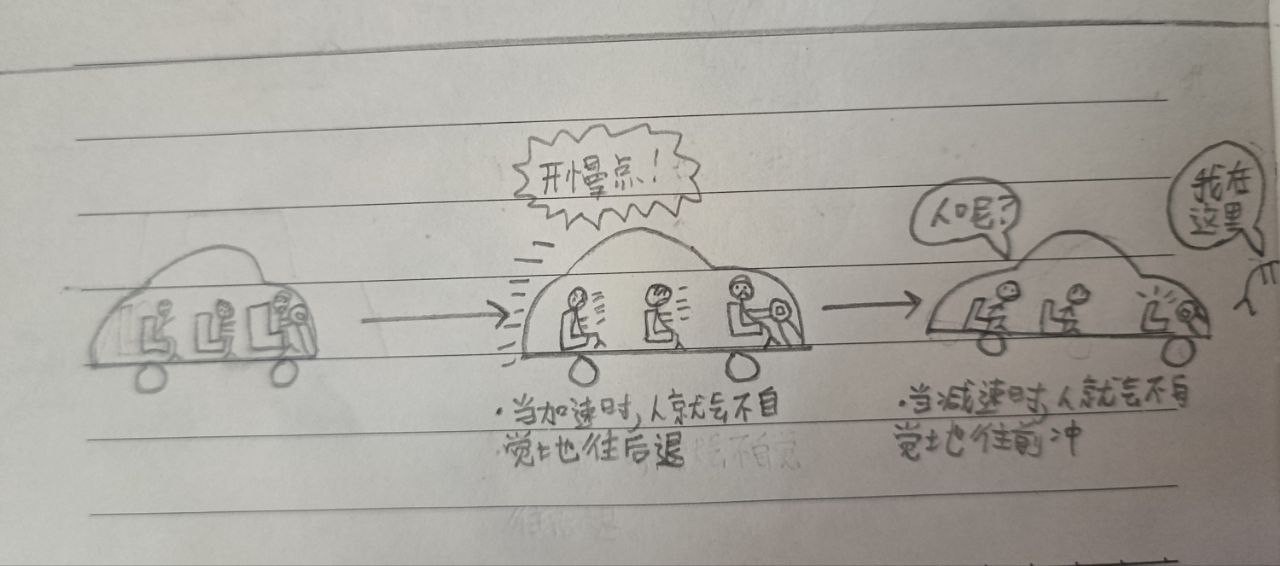 开慢点!
人呢?
我在
这里
·当加速时,人就会不自
觉地往后退
·当减速时,人就会不自
觉地往前冲